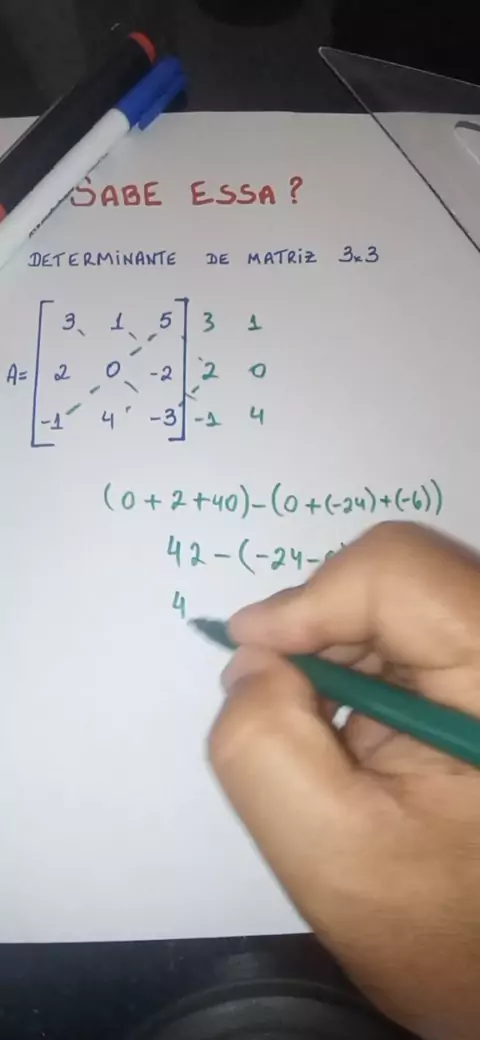 SABE ESSA?
DETERMINANTE DE MATRIZ 3x3
3 1 5 3 1
A= 2 0 -2 2 0
-1 4 -3 -1 4
(0+2+40)-(0+(-24)+(-6))
42-(-24-
4